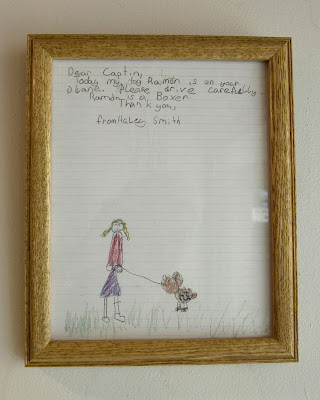 Dear Captin,
Today my dog Ramon is on your
plane. Please drive carefully.
Ramon is a Boxer.
Thank you,
from Haley Smith